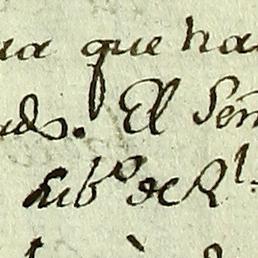 ua que ha
ads. El Señ
Lib.º de R.l